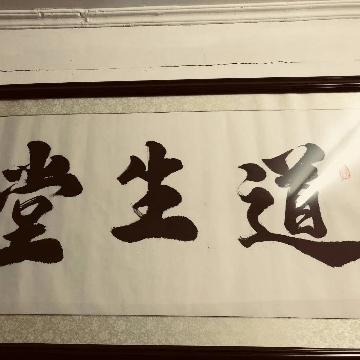 道生堂